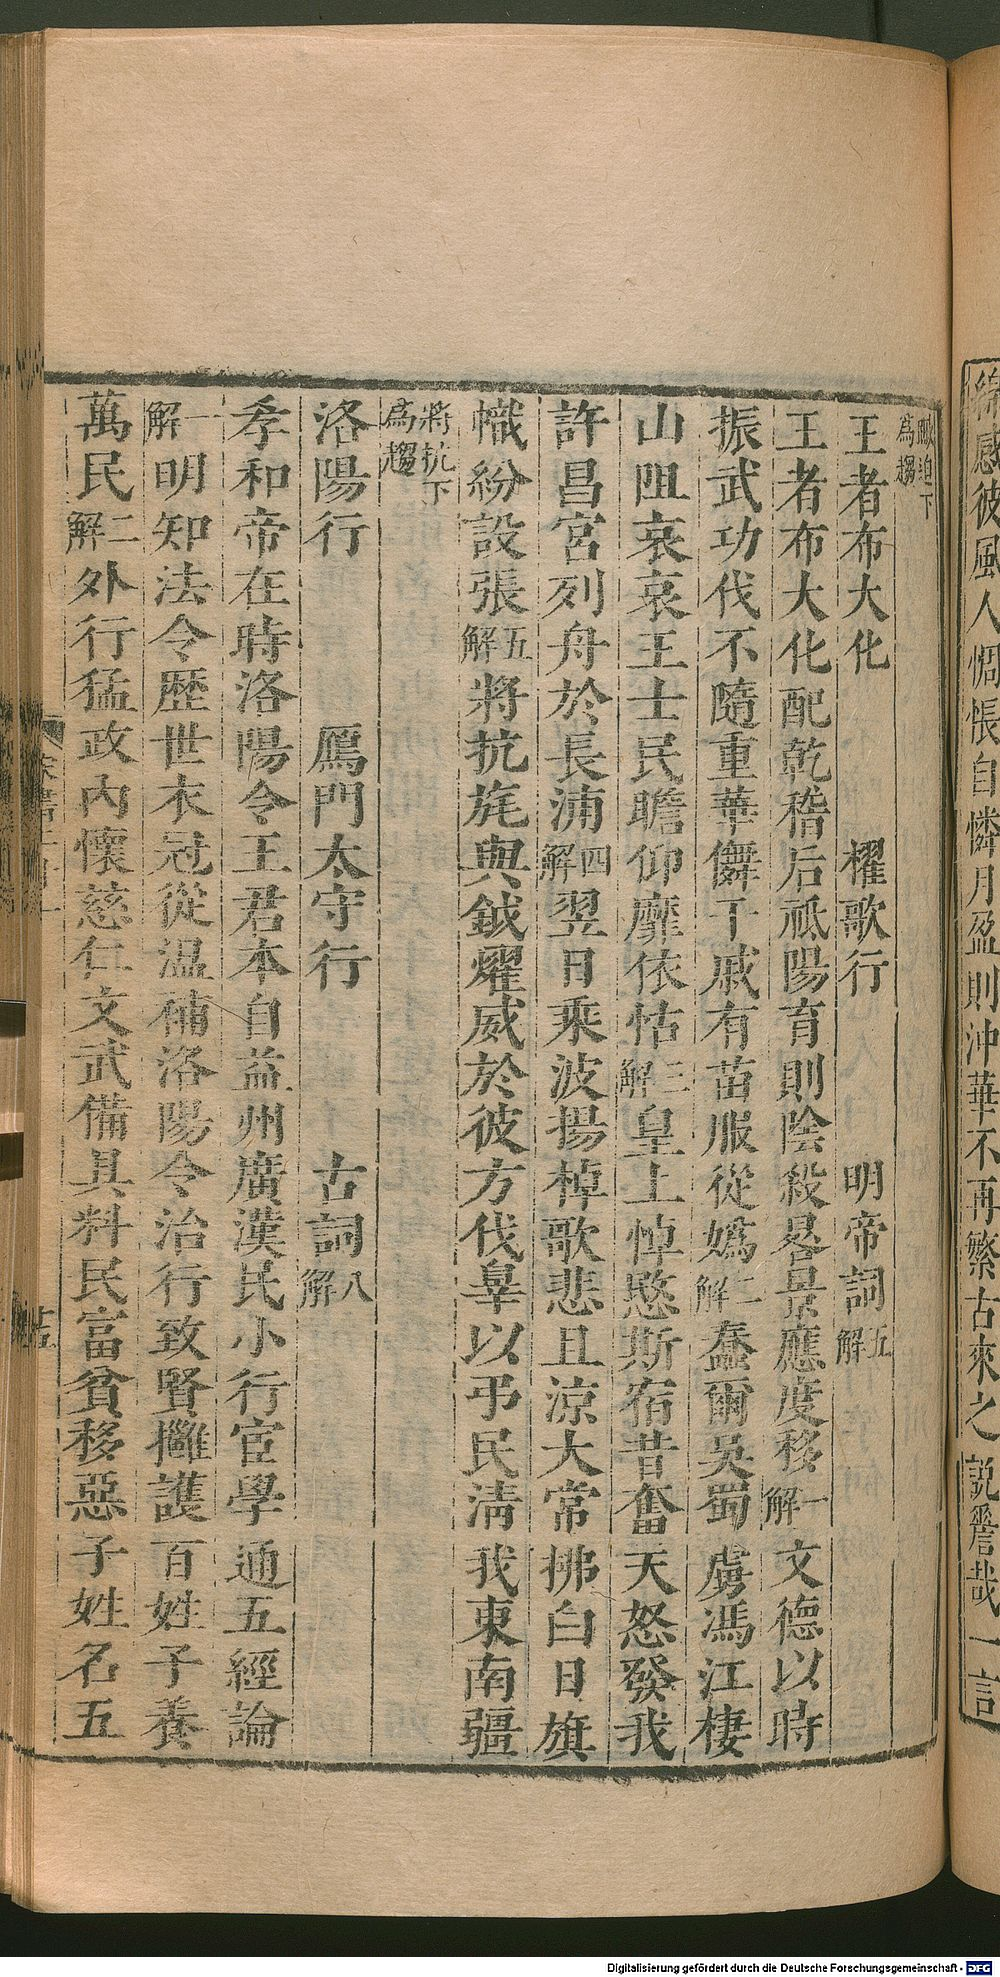 綿感彼風人惆悵自憐月盈則沖華不再繁古來之説嗟哉一言
歐迫下
爲趨
王者布大化　櫂歌行　明帝詞五解
王者布大化配乾稽后祗陽育則陰殺晷景應度移一解文德以時
振武功伐不隨重華儛干戚有苗服從嬀二解蠢爾吳蜀虜馮江棲
山阻哀哀王士民瞻仰靡依怙三解皇上悼愍斯宿昔奮天怒發我
許昌宮列舟於長浦四解翌日乘波揚棹歌悲且涼大常拂白日旗
幟紛設張五解將抗旄與鉞燿威於彼方伐辠以弔民淸我東南疆
將抗下
爲趨
洛陽行　鴈門太守行　古詞八解
孝和帝在時洛陽令王君本自益州廣漢民小行宦學通五經論
一解明知法令歷世衣冠從温補洛陽令治行致賢擁護百姓子養
萬民二解外行猛政內懷慈仁文武備具料民富貧移惡子姓名五
Digitalisierung gefördert durch die Deutsche Forschungsgemeinschaft - DFG